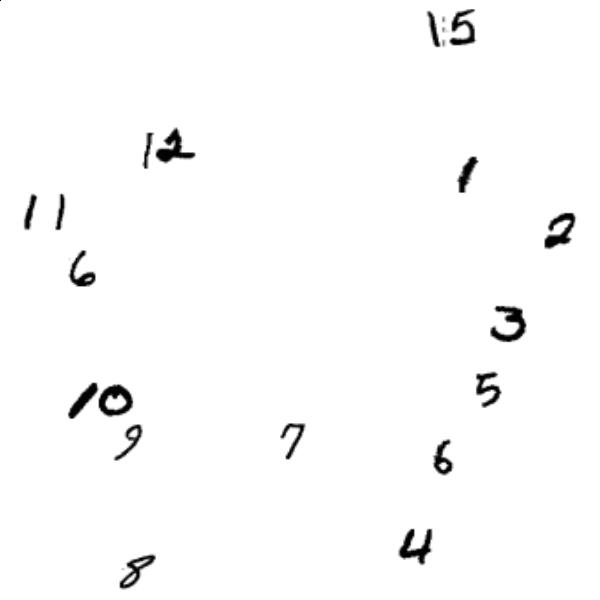 15
12
1
11
2
6
3
5
10
9
7
6
4
8